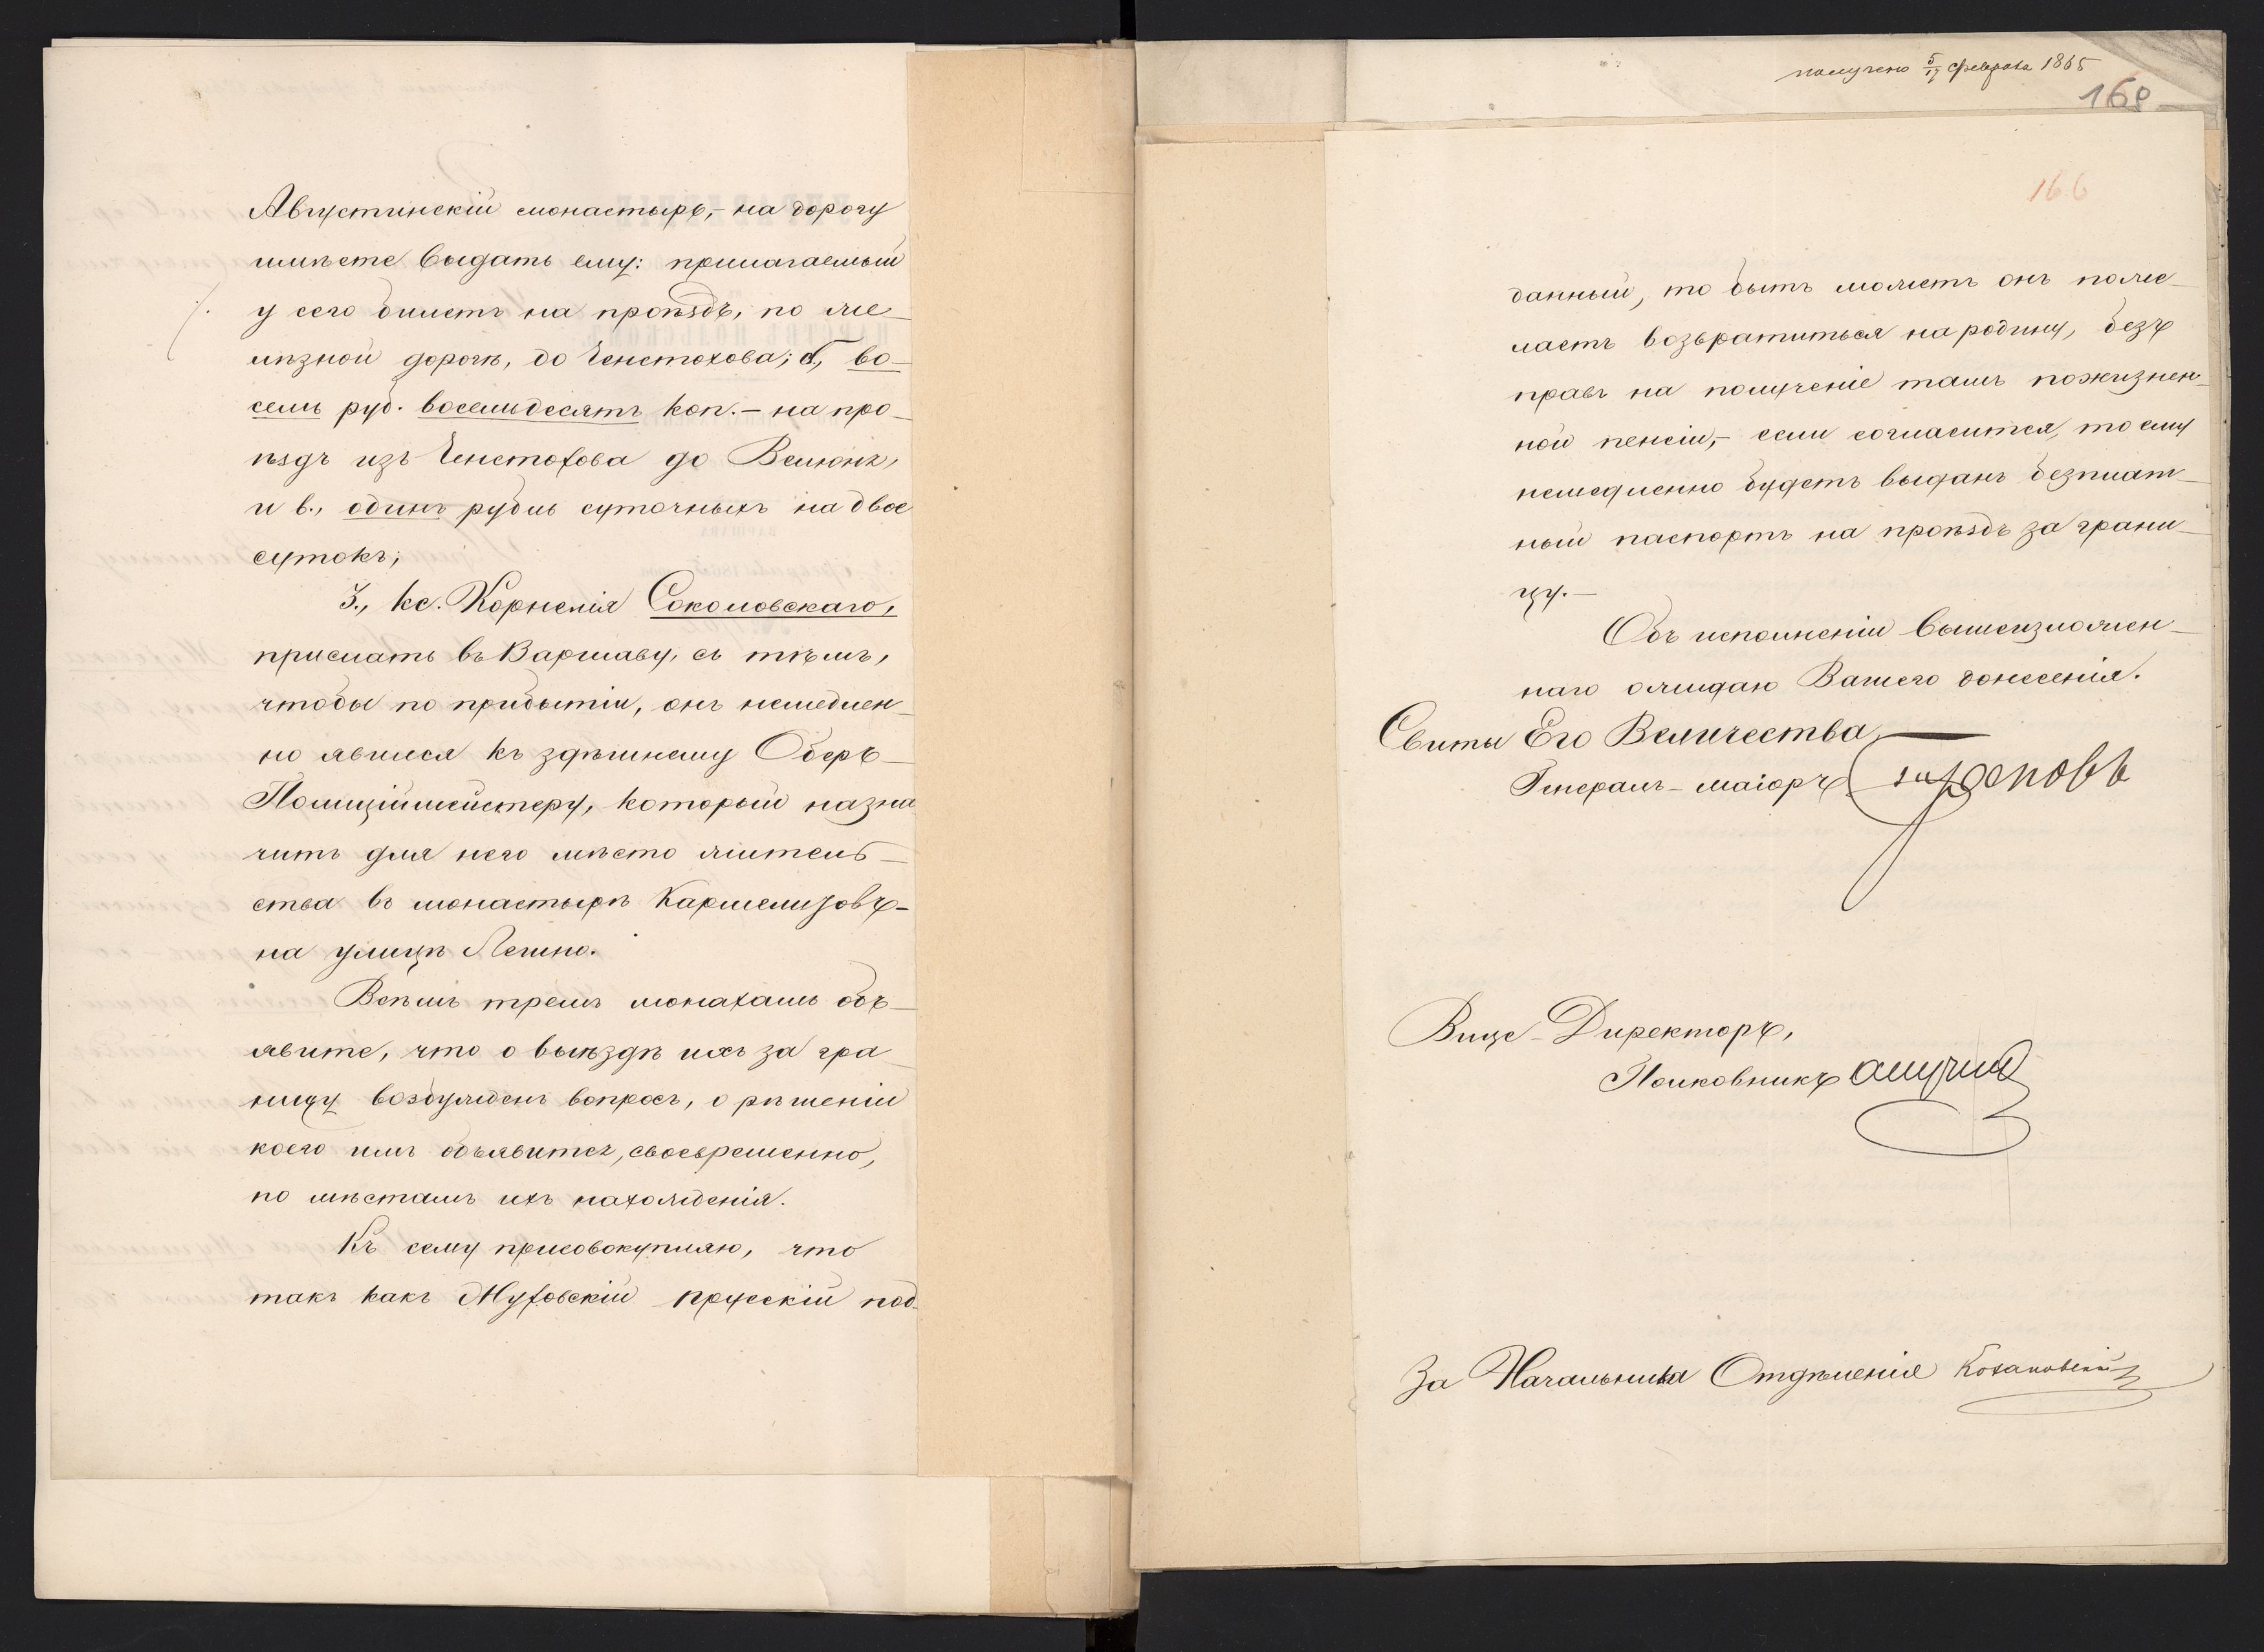 Августинскій монастырь,- на дорогу
имѣете выдать ему: прилагаемый
у сего билетъ на проѣздъ, по же-
лѣзной дорогѣ, до Ченстохова; б., во-
семь руб. восемьдесятъ коп.- на про-
ѣздъ изъ Ченстохова до Велюнь,
и в., одинъ рубль суточныхъ на двое
сутокъ;
3., кс. Корнелія Соколовскаго,
прислать въ Варшаву, съ тѣмъ,
чтобы по прибытіи, онъ немедлен-
но явился къ здѣшнему Оберъ-
Полиціймейстеру, который назна
читъ для него мѣсто житель-
ства въ монастырѣ Кармелитовъ-
на улицѣ Лешно.
Всѣмъ тремъ монахамъ объ-
явите, что о выѣздѣ ихъ за гра-
ницу возбужденъ вопросъ, о рѣшеніи
коего имъ объявится, своевременно,
по мѣстамъ ихъ нахожденія.
Къ сему присовокупляю, что
такъ какъ Муховскій прусскій под-
получено 5/17 февраля 1865
169
166
данный, то быть можетъ онъ поже-
лаетъ возвратиться на родину, безъ
правъ на полученіе тамъ пожизнен-
ной пенсіи,- если согласится, то ему
немедленно будетъ выданъ безплат-
ный паспортъ на проѣздъ за грани-
цу.-
Объ исполненіи вышеизложен-
наго ожидаю Вашего донесенія.
Свиты Его Величества
Генералъ-маіоръ
Вице-Директоръ,
Полковникъ Анучинъ
За Начальника Отдѣленія Кохановскій